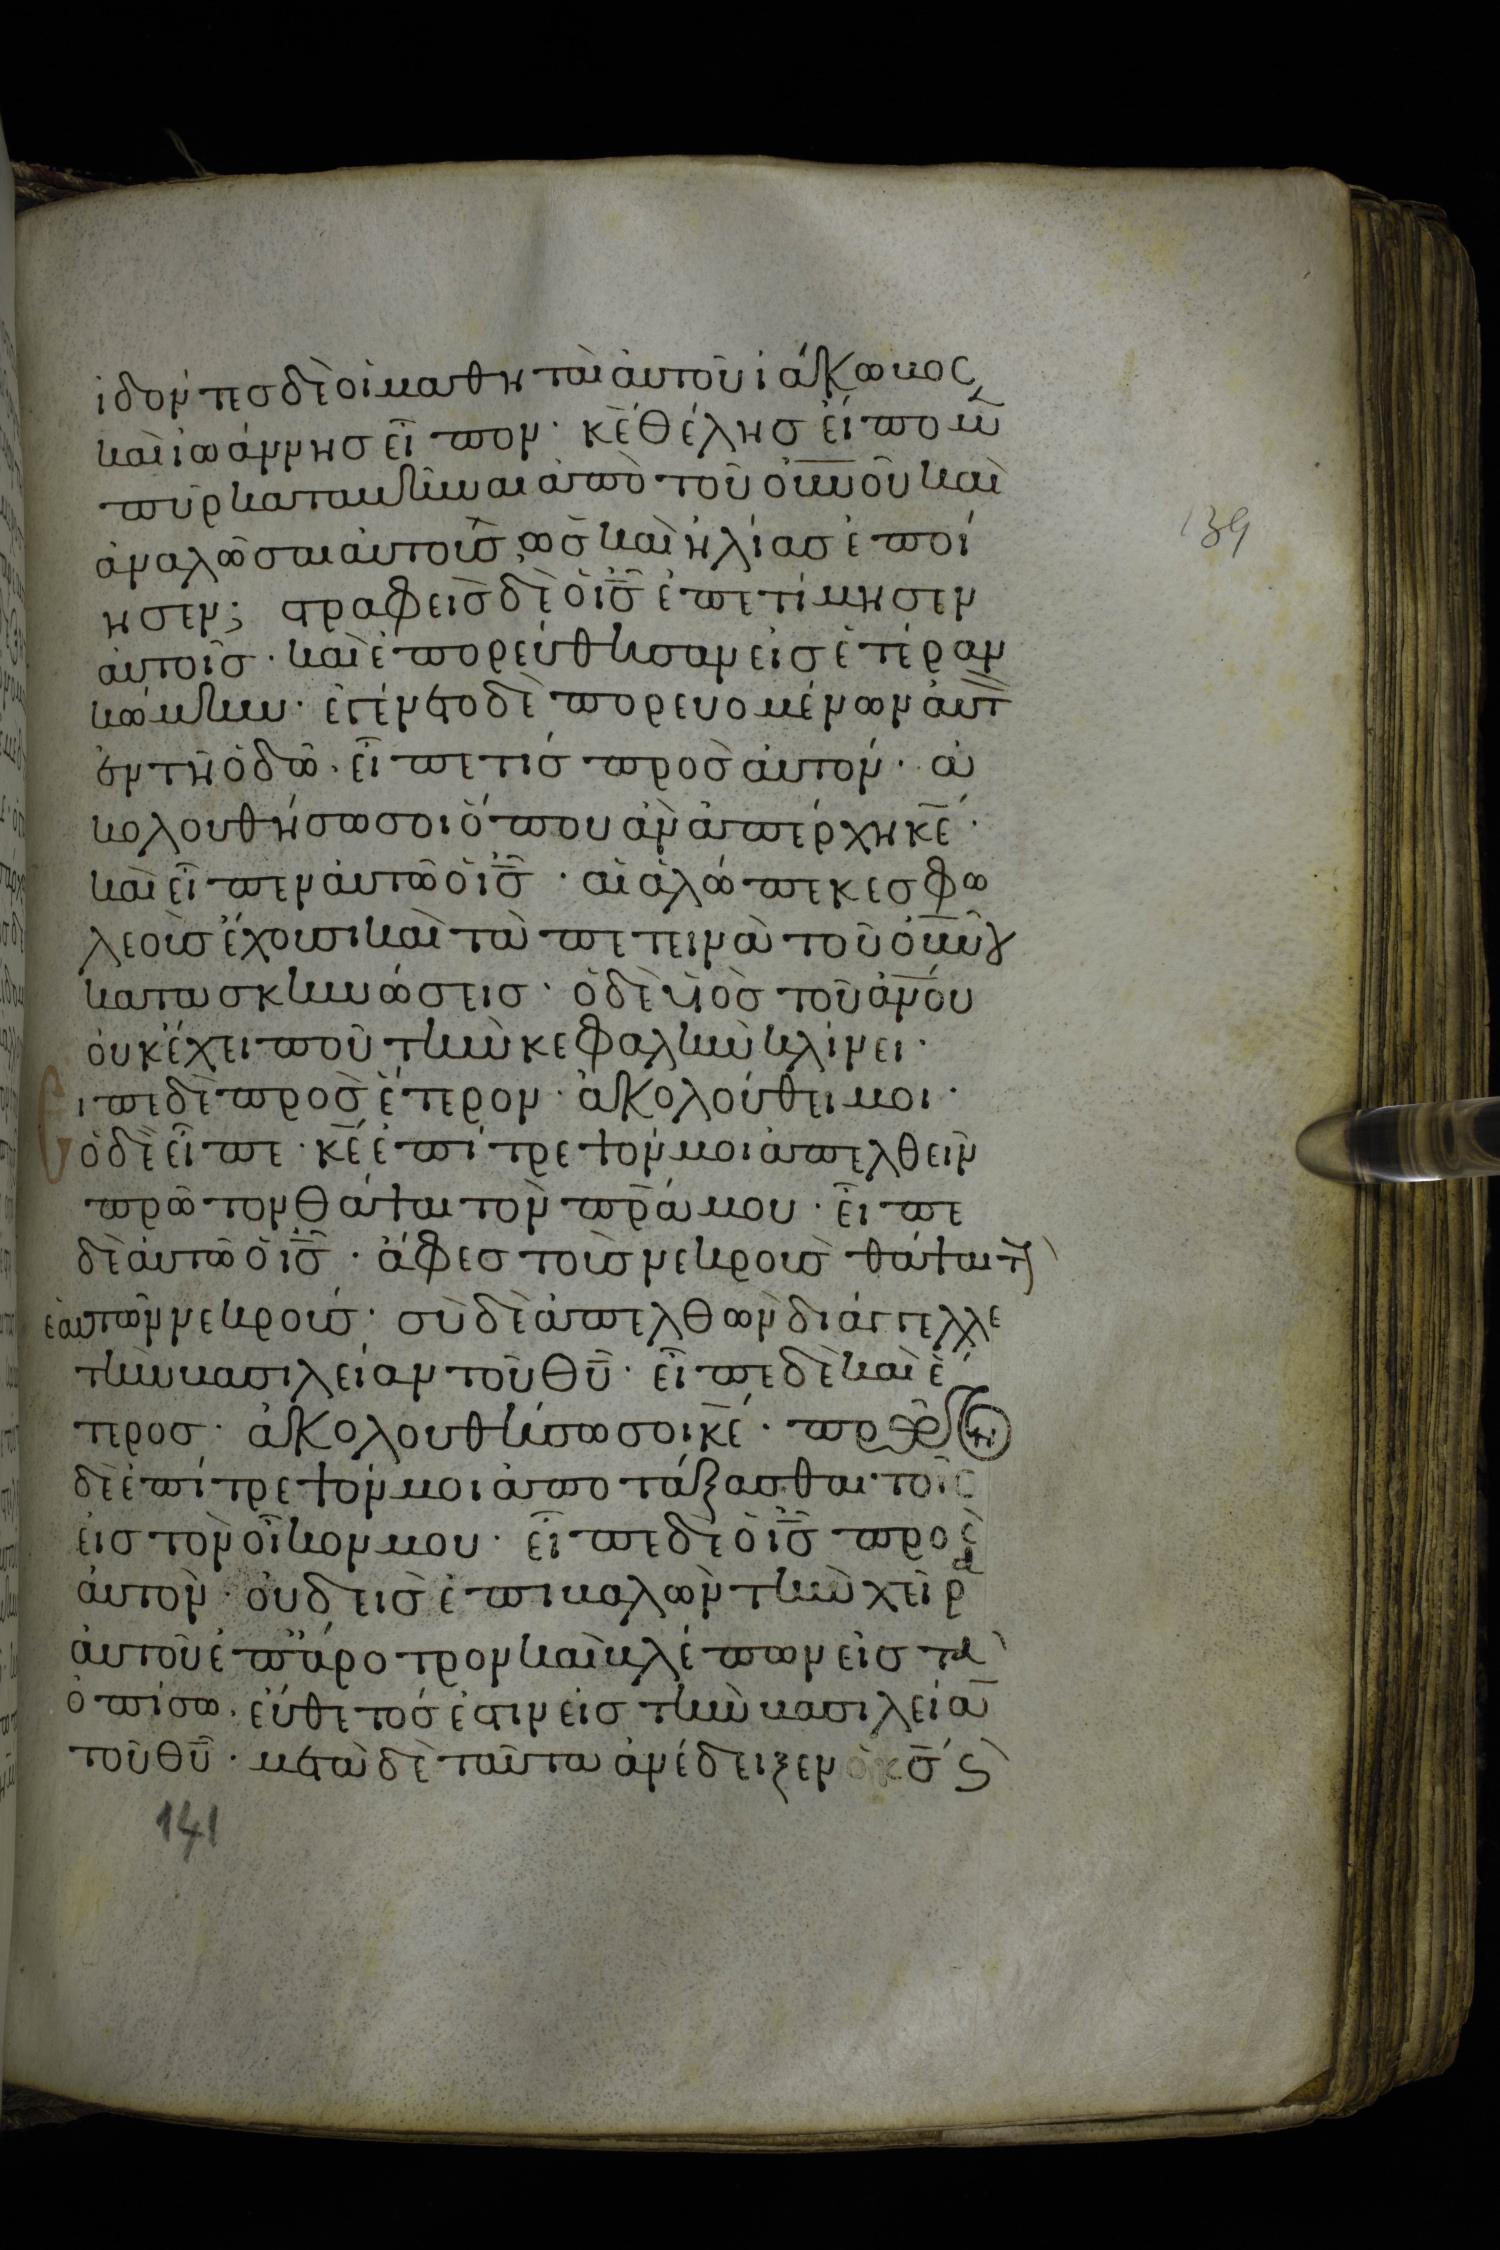 ἰδόντες δὲ οἱ μαθηταὶ αὐτοῦ ἰάκωβος
καὶ ἰωάννης εἶπον· κ̅ε θέλης εἴπομ̅
πῦρ καταβῆναι ἀπὸ τοῦ ο̅υ̅ν̅οῦ καὶ
ἀναλῶσαι αὐτοὺς, ὡς καὶ ἠλίας ἐποί
ησεν; στραφεὶς δὲ ὁ ι̅ς̅ ἐπετίμησεν
αὐτοῖς· καὶ ἐπορεύθησαν εἰς ἑτέραν
κώμην· ἐγένετο δὲ πορευομένων αὐτ
ἐν τῆ ὁδῶ· εἶπέ τις πρὸς αὐτόν· ἀ
κολουθήσω σοι ὅπου ἂν ἀπέρχη κ̅ε̅·
καὶ εἶπεν αὐτῶ ὁ ι̅ς̅· αἱ ἀλώπεκες φω
λεοὺς ἔχουσι καὶ τὰ πετεινὰ τοῦ ο̅υ̅ν̅ȣ
κατασκηνώσεις· ὁ δὲ υἱὸς τοῦ α̅ν̅ο̅υ
οὐκ ἔχει ποῦ τὴν κεφαλὴν κλίνει·
Εἶπε δὲ πρὸς ἕτερον· ἀκολούθει μοι·
ὁ δὲ εἶπε· κ̅ε ἐπίτρεψόν μοι ἀπελθεῖν
πρῶτον θάψαι τὸν π̅ρ̅α μου· εἶπε
δὲ αὐτῶ ὁ ι̅ς̅· ἄφες τοὺς νεκροὺς θάψαι τ
ἑαυτῶν νεκρούς· σὺ δὲ ἀπελθὼν διάγγελλε
τὴν βασιλείαν τοῦ θ̅υ̅· εἶπε δὲ καὶ ἕ
τερος· ἀκολουθήσω σοι κ̅ε̅·
δὲ ἐπίτρεψόν μοι ἀποτάξασθαι τοῖς
εἰς τὸν οἶκον μου· εἶπε δὲ ὁ ι̅ς̅ πρὸς
αὐτόν· οὐδεὶς ἐπιβαλὼν τὴν χεῖρα
αὐτοῦ ἐπ' ἄροτρον καὶ βλέπων εἰς τὰ
ὀπίσω· εὔθετός ἐστιν εἰς τὴν βασιλεία̅
τοῦ θ̅υ̅· μετὰ δὲ ταῦτα ἀνέδειξεν ὁ κ̅ς̅
139
141